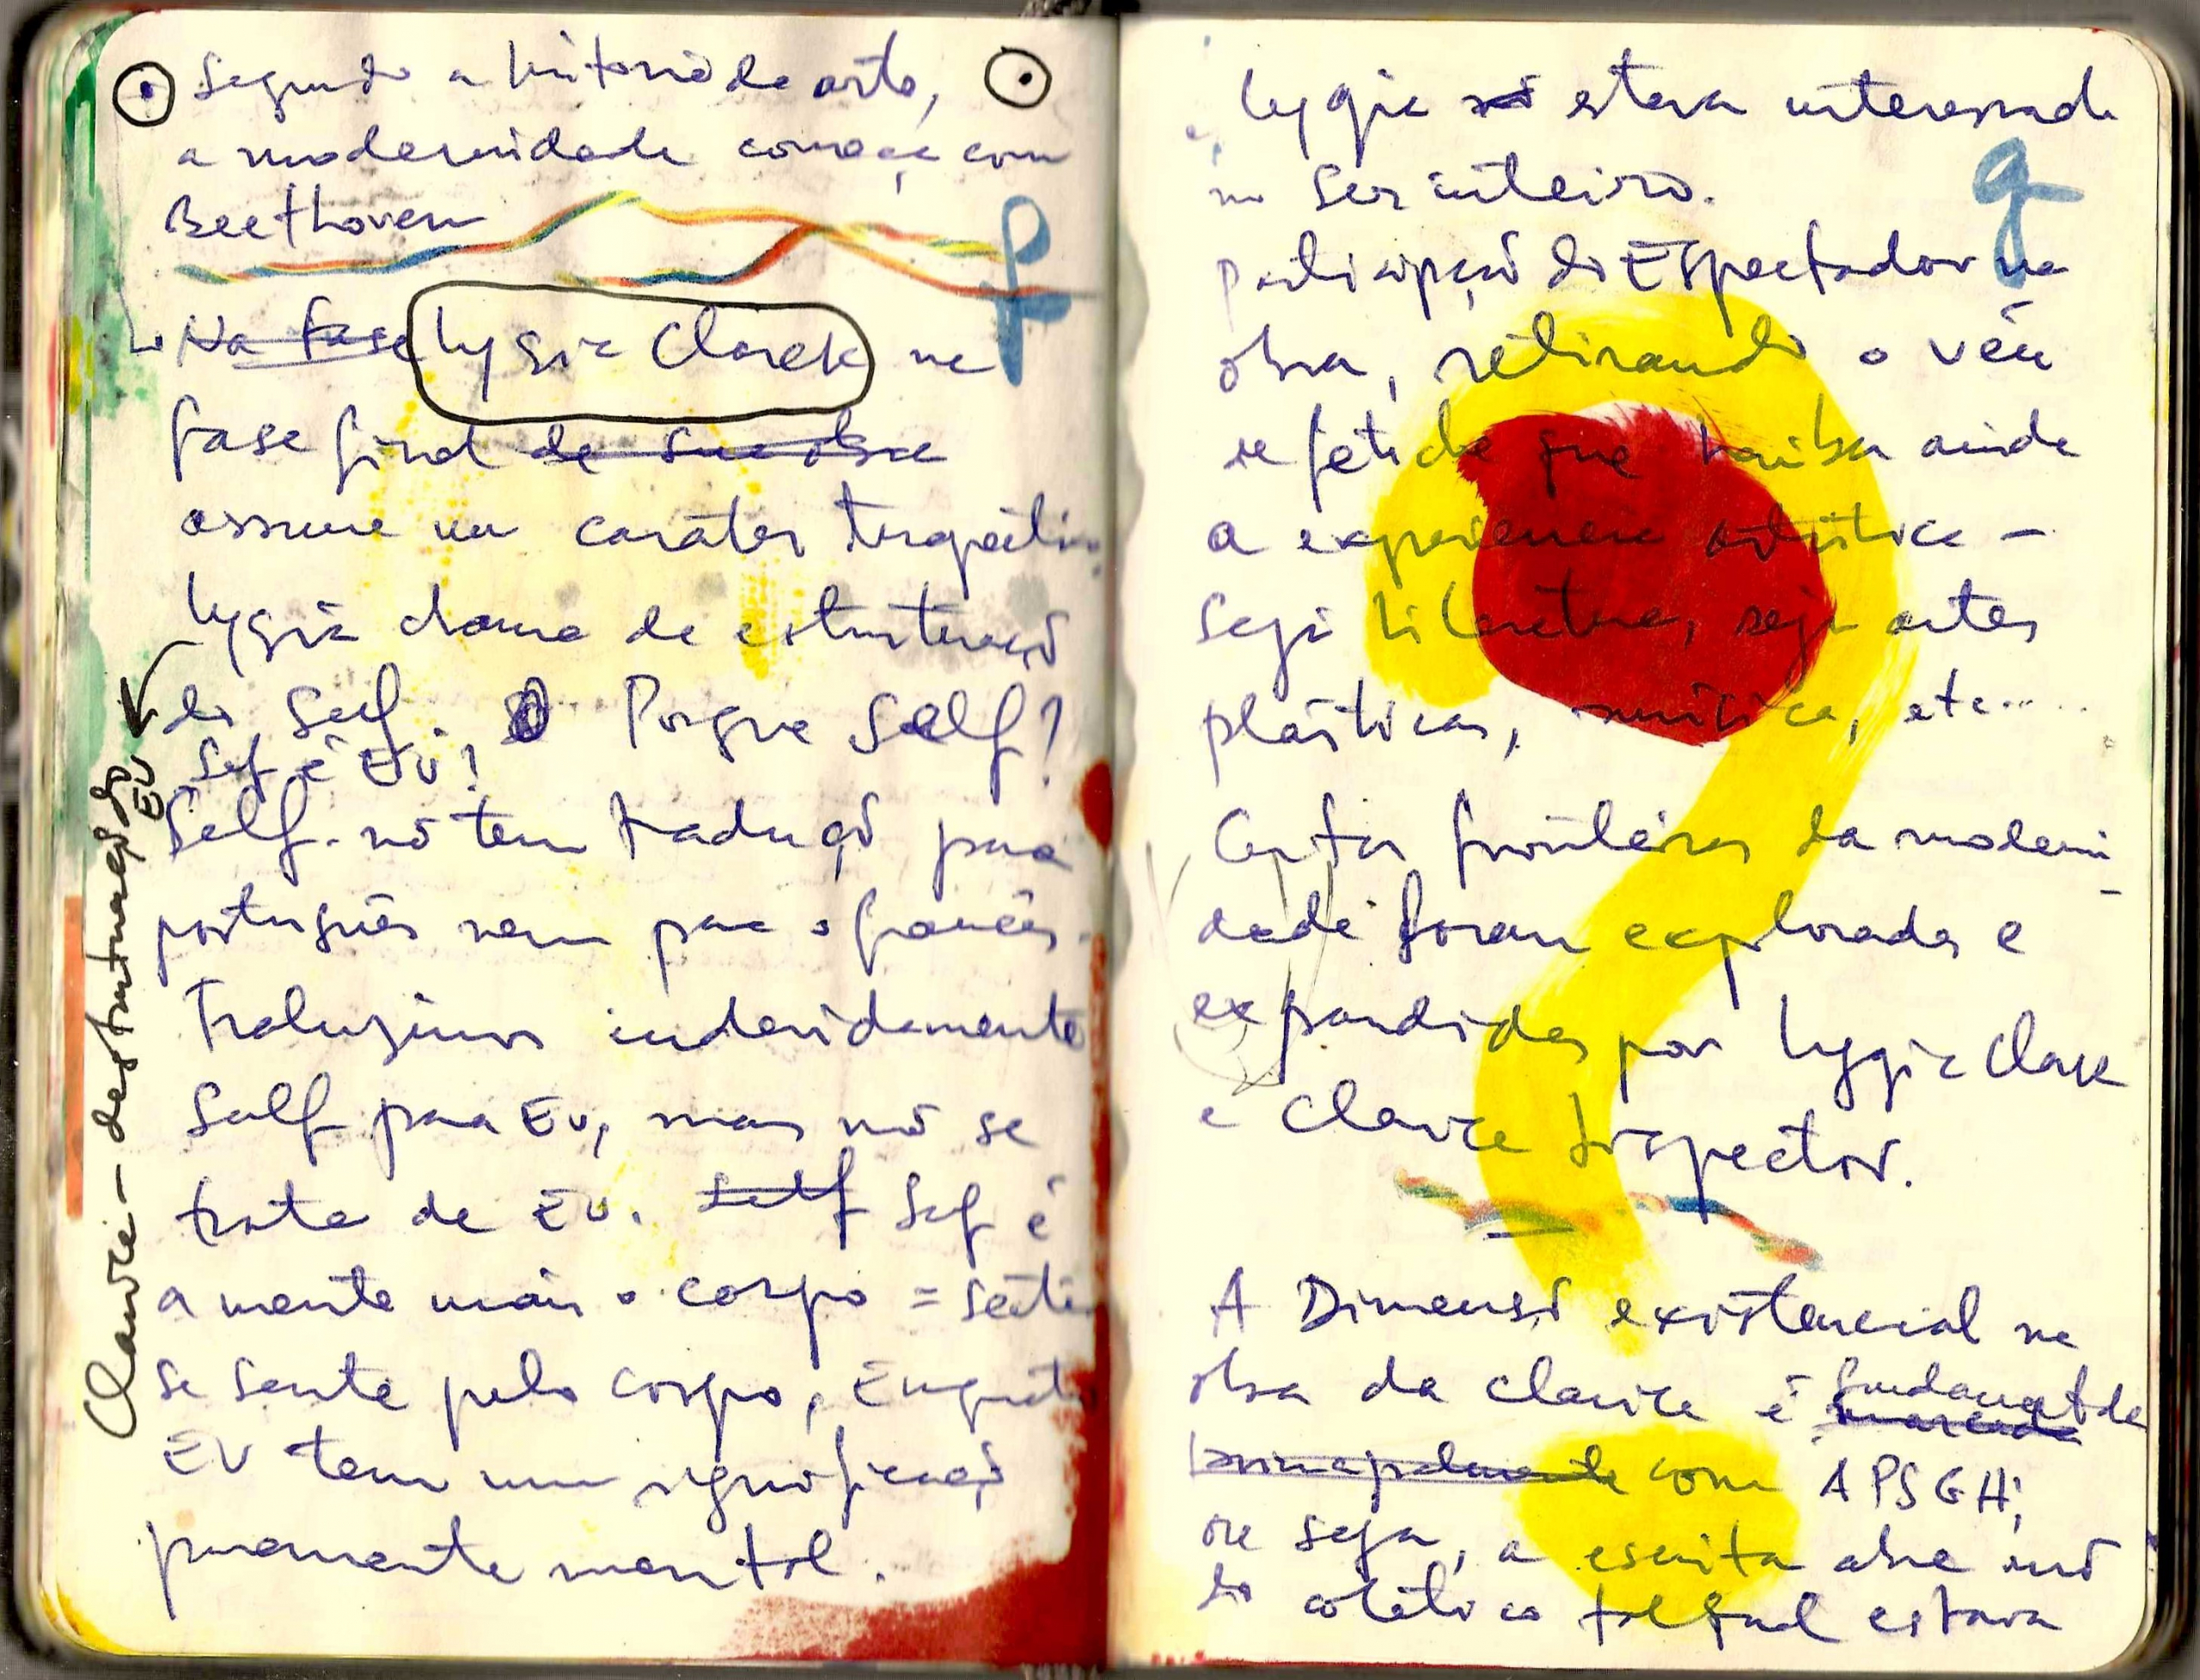 Segundo a história da arte,
a modernidade começa com
Beethoven
Na fase Lygia Clark na
fase final de sua obra
assume um caráter
Lygia chama de estruturação
do Self. Porque Self?
Self é EU?
Self. não tem tradução para
português nem para o francês.
Traduzimos indevidamente
Self para EU, mas não se
trata de EU. Self Self é
a mente mais o corpo =
se sente pelo corpo,
EU tem um significado
puramente mental.
Clarice - destruturação do
EU
Lygia estava interessada
no Ser inteiro.
participação do Espectador na
obra, retirando o véu
de fetiche que havia ainda
a experiência artística -
Seja Literatura, seja artes
plásticas, música, etc.....
Certas fronteiras da moderni-
dade foram exploradas e
expandidas por Lygia Clark
e Clarice Lispector.
A Dimensão existencial na
obra da Clarice é fundamental marcada
principalmente com APSGH,
ou seja, a escrita
do tal qual estava
g